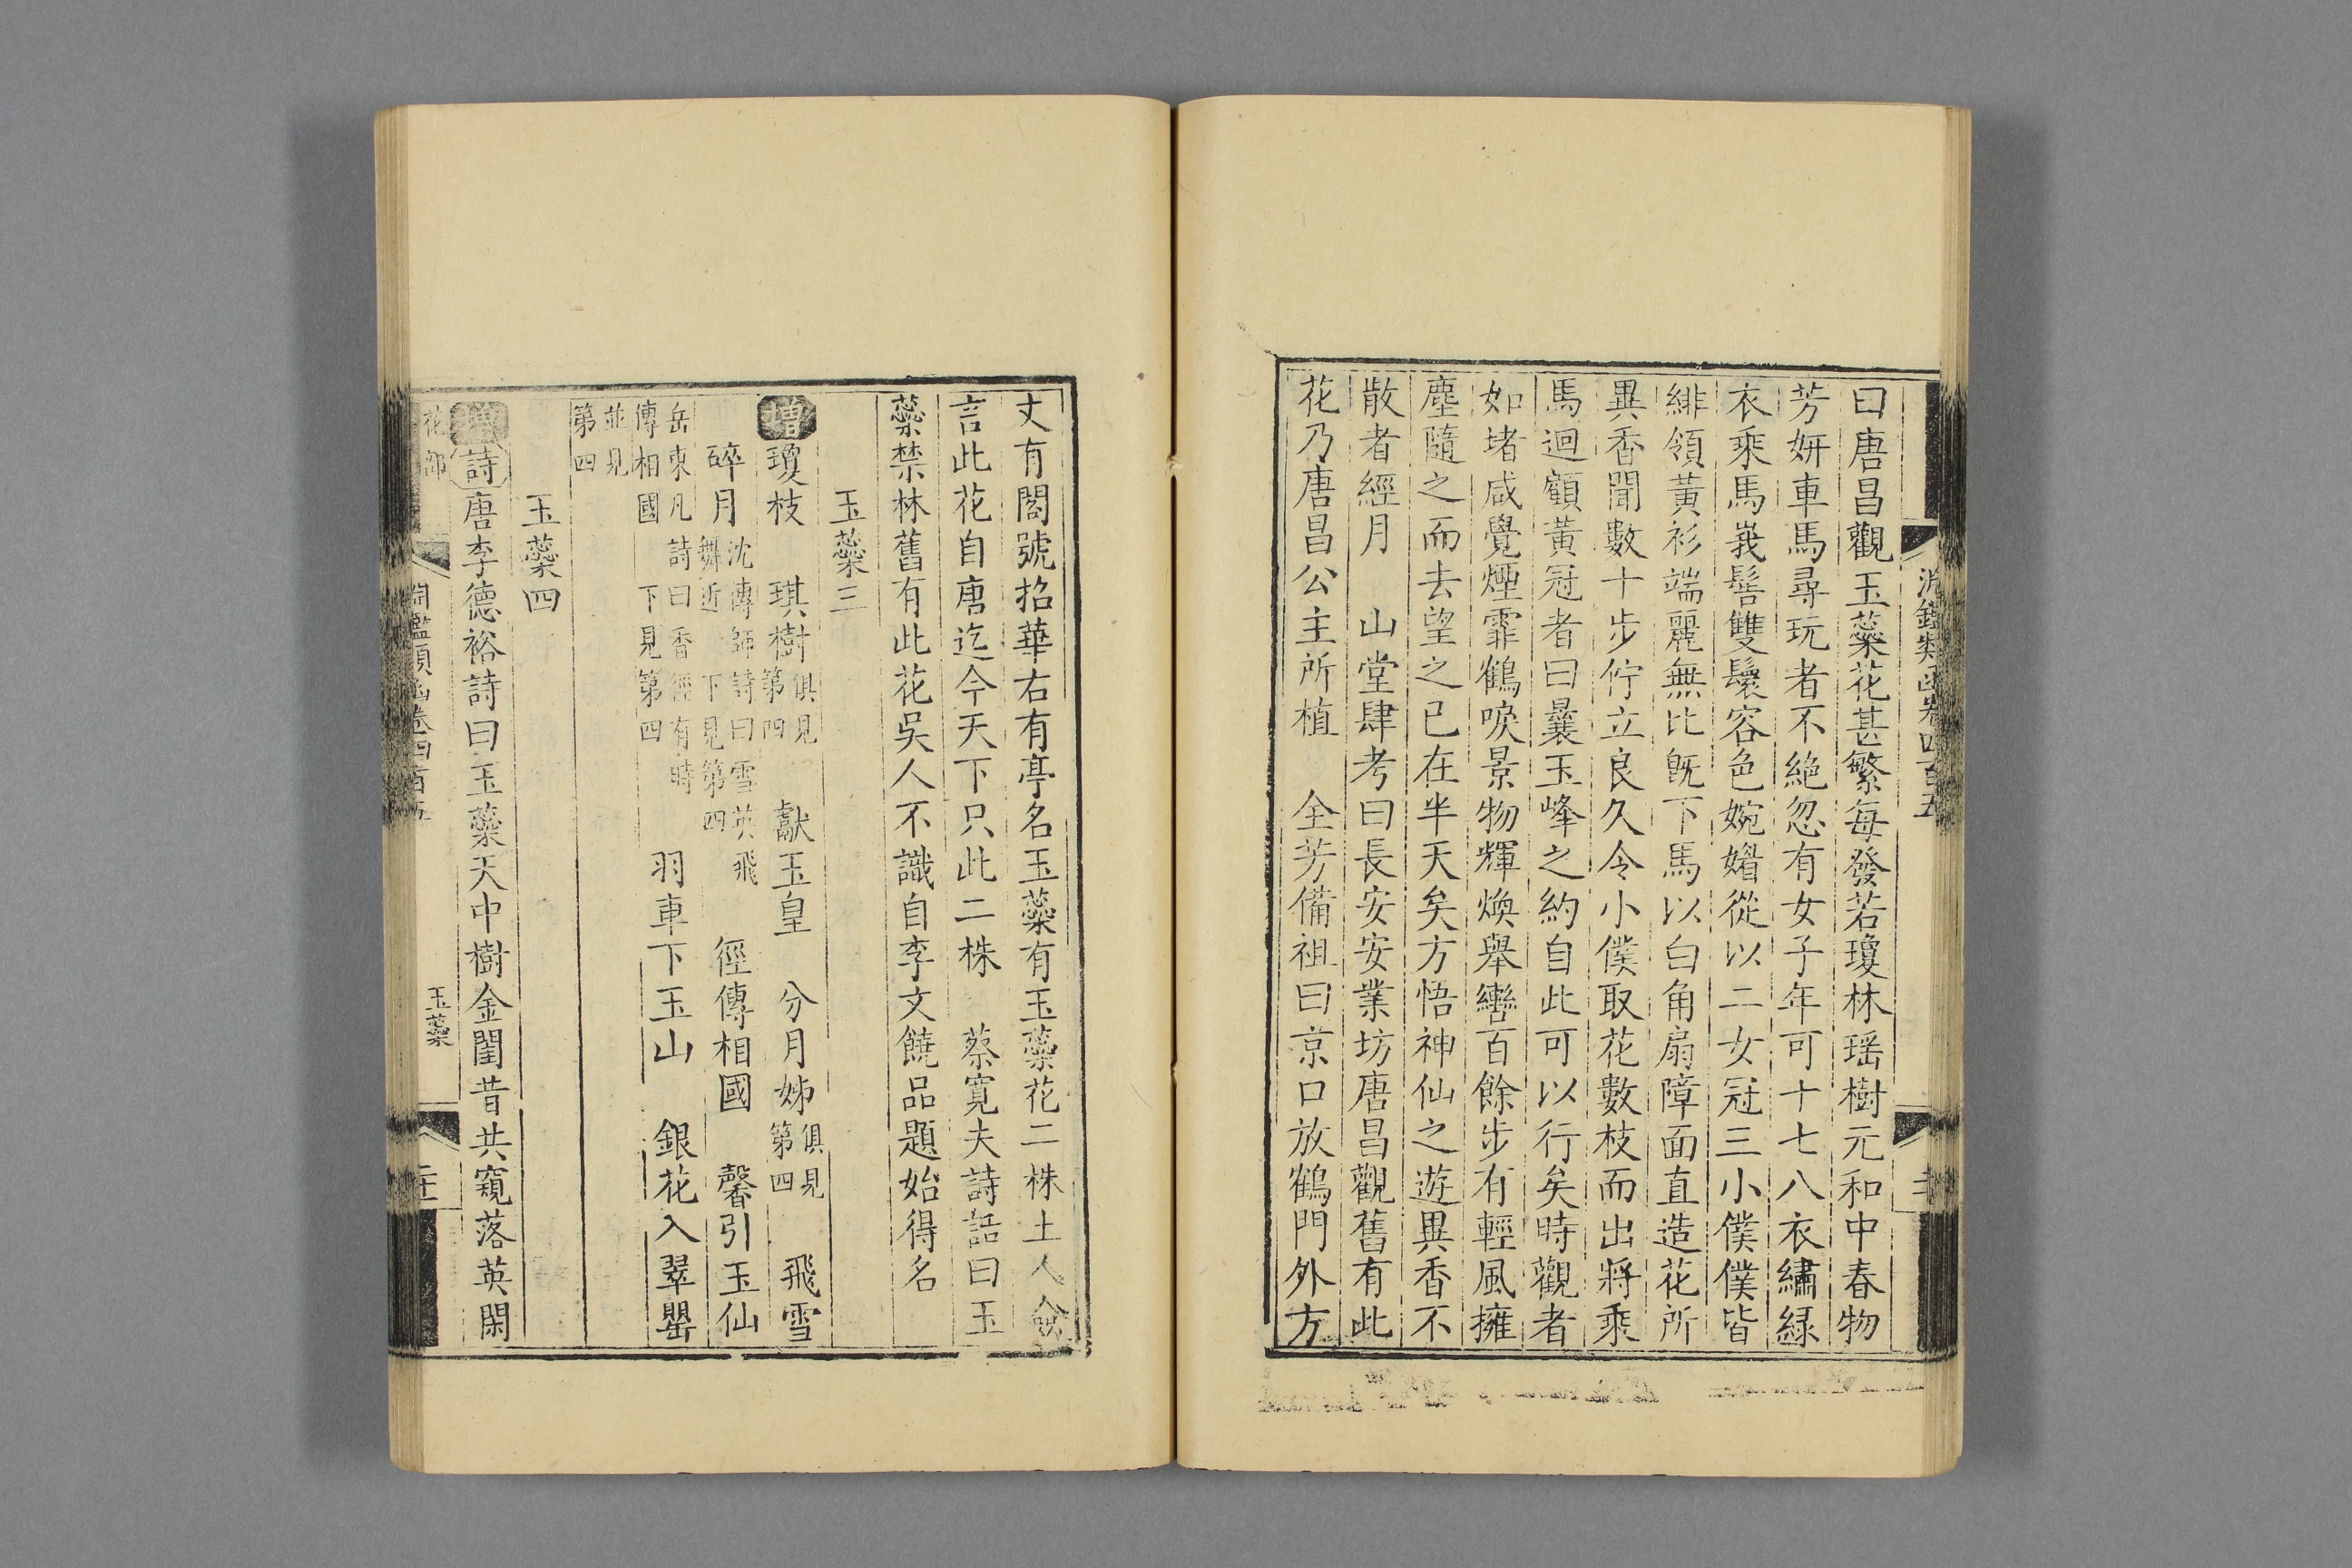 淵鑑類函卷四百五
曰唐昌觀玉蘂花甚繁每發若瓊林瑶樹元和中春物
芳妍車馬尋玩者不絶忽有女子年可十七八衣繡緑
衣乘馬峩髻雙鬟容色婉媚從以二女冠三小僕僕皆
緋領黃衫端麗無比既下馬以白角扇障面直造花所
異香聞數十步佇立良久令小僕取花數枝而出將乘
馬迴顧黃冠者曰曩玉峰之約自此可以行矣時觀者
如堵咸覺煙霏鶴唳景物輝煥舉轡百餘步有輕風擁
塵隨之而去望之已在半天矣方悟神仙之遊異香不
散者經月　山堂肆考曰長安安業坊唐昌觀舊有此
花乃唐昌公主所植　全芳備祖曰京口放鶴門外方
丈有閣號招華右有亭名玉蘂有玉蘂花二株土人僉
言此花自唐迄今天下只此二株　蔡寬夫詩話曰玉
蘂禁林舊有此花吳人不識自李文饒品題始得名
玉蘂三
增瓊枝　琪樹俱見第四　獻玉皇　分月姊俱見第四　飛雪
碎月沈傳師詩曰雪英飛舞近　下見第四　徑傳相國　馨引玉仙
岳東凡詩曰香徑有時傳相國　下見第四　羽車下玉山　銀花入翠罌
並見第四
玉蘂四
增詩唐李德裕詩曰玉蘂天中樹金閨昔共窺落英閑
花部　淵鑑類函卷四百五　玉蘂